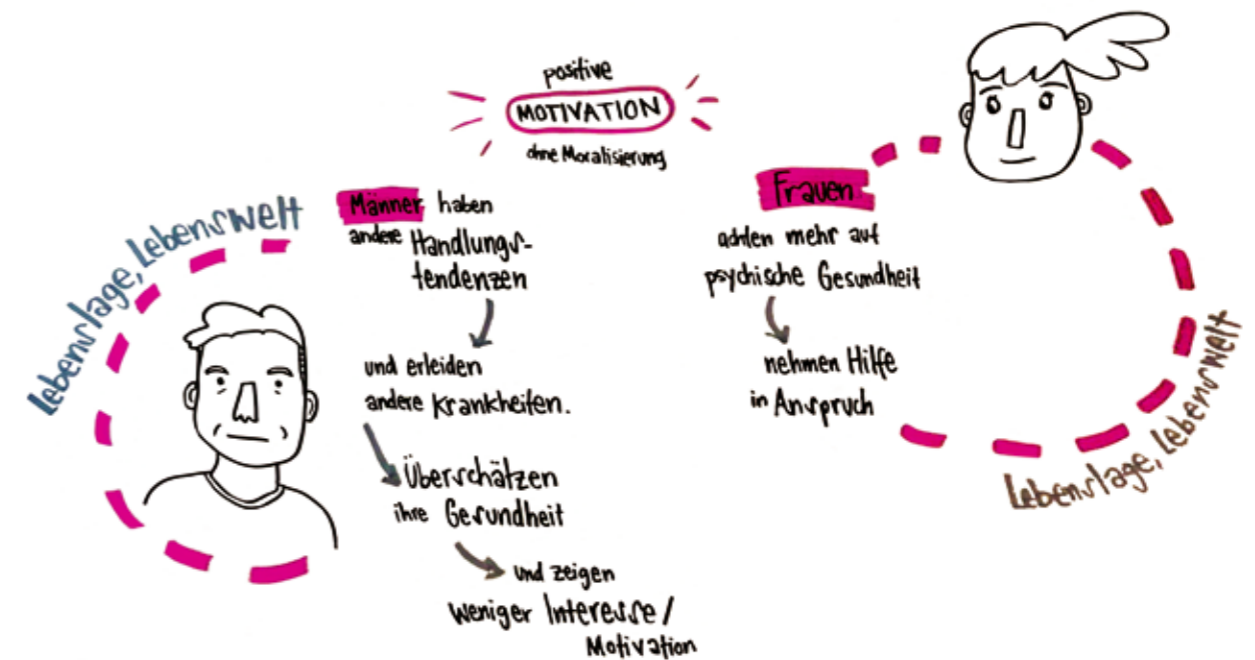 positive
MOTIVATION
ohne Moralisierung
Lebenslage, Lebenswelt
Männer haben
andere Handlungs-
tendenzen
und erleiden
andere Krankheiten.
Überschätzen
ihre Gesundheit
und zeigen
weniger Interesse /
Motivation
Frauen
achten mehr auf
psychische Gesundheit
nehmen Hilfe
in Anspruch
Lebenslage, Lebenswelt